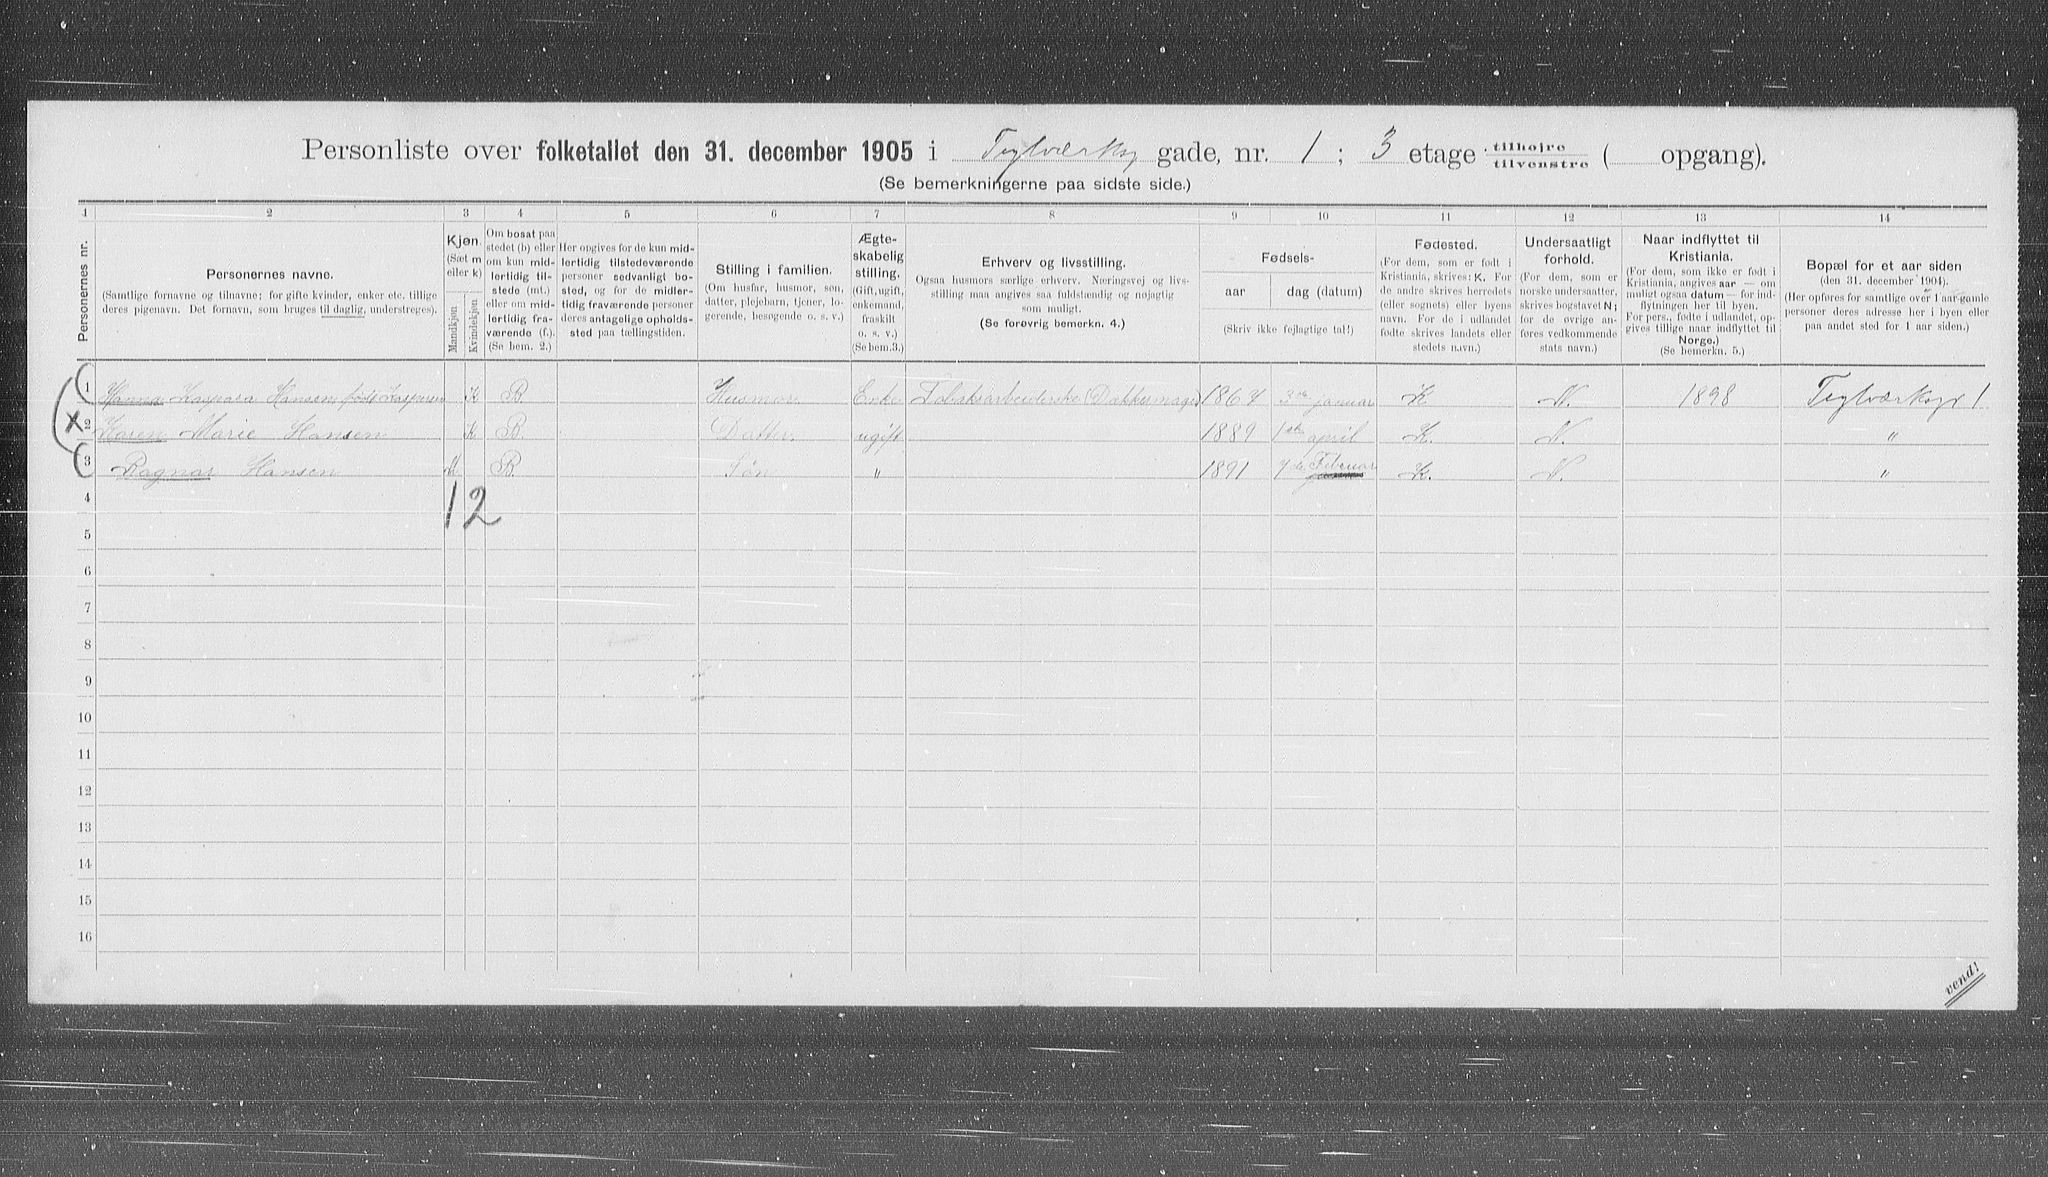 Personliste over folketallet den 31. december 1905 i Teglværks gade, nr. 1 ; 3 etage tilhøjre tilvenstre ( opgang).
(Se bemerkningerne paa sidste side.)
1 2 3 4 5 6 7 8 9 10 11 12 13 14
Personernes nr.
Personernes navne.
(Samtlige fornavne og tilnavne; for gifte kvinder, enker etc. tillige
deres pigenavn. Det fornavn, som bruges til daglig, understreges).
Kjøn.
(Sæt m
eller k)
Mandkjøn
Kvindekjøn
Om bosat paa
stedet (b) eller
om kun mid-
lertidig til-
stede (mt.)
eller om mid-
lertidig fra-
værende (f.).
(Se bem. 2.)
Her opgives for de kun mid-
lertidig tilstedeværende
personer sedvanligt bo-
sted, og for de midler-
tidig fraværende personer
deres antagelige opholds-
sted paa tællingstiden.
Stilling i familien.
(Om husfar, husmor, søn,
datter, plejebarn, tjener, lo-
gerende, besøgende o. s. v.)
Ægte-
skabelig
stilling.
(Gift, ugift,
enkemand,
fraskilt
o. s. v.)
(Se bem.3.)
Erhverv og livsstilling.
Ogsaa husmors særlige erhverv. Næringsvej og livs-
stilling maa angives saa fuldstændig og nøjagtig
som muligt.
(Se forøvrig bemerkn. 4.)
Fødsels-
aar dag (datum)
(Skriv ikke fejlagtige tal!)
Fødested.
(For dem, som er født i
Kristiania, skrives: K. For
de andre skrives herredets
(eller sognets) eller byens
navn. For de i udlandet
fødte skrives landets eller
stedets navn.)
Undersaatligt
forhold.
(For dem, som er
norske undersaatter,
skrives bogstavet N;
for de øvrige an-
føres vedkommende
stats navn.)
Naar indflyttet til
Kristiania.
(For dem, som ikke er født i
Kristiania, angives aar — om
muligt ogsaa datum — for ind-
flytningen her til byen.
For pers., fødte i udlandet, op-
gives tillige naar indflyttet til
Norge.)
(Se bemerkn. 5.)
Bopæl for et aar siden
(den 31. december 1904).
(Her opføres for samtlige over 1 aar gamle
personer deres adresse her i byen eller
paa andet sted for 1 aar siden.)
1 Hanna Kaspara Hansen født Kaspersen K B. Husmor Enke Tobaksarbeiderske (Dækkermager) 1867 3die januar K N. 1898 Teglværksgd 1
x 2 Karen Marie Hansen K B. Datter. ugift 1889 1ste april K. N. "
3 Ragnar Hansen M B. Søn " 1891 7de Februar K. N. "
4 1 2
5
6
7
8
9
10
11
12
13
14
15
16
vend!